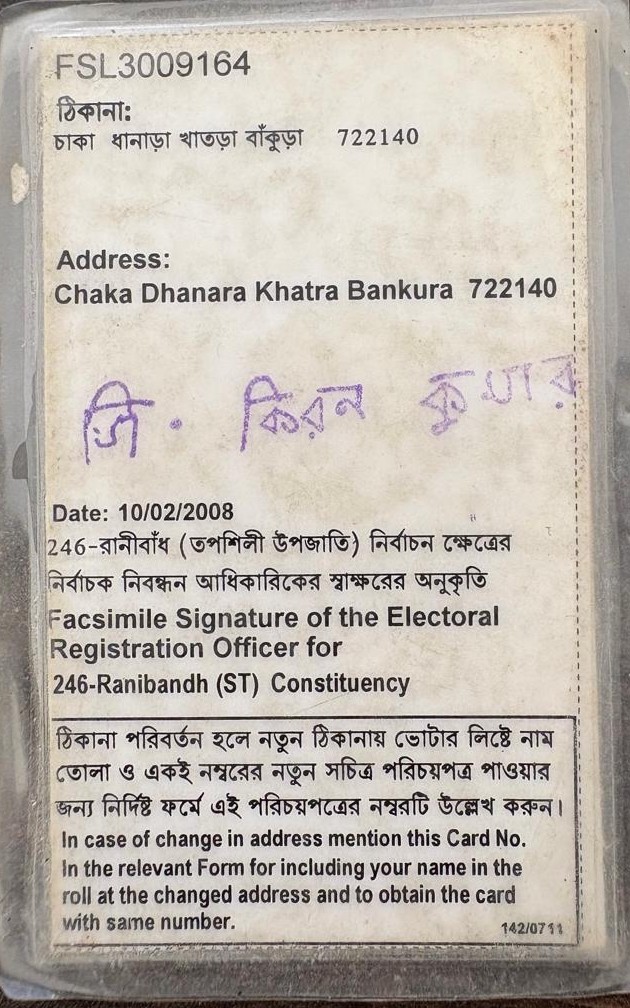 FSL3009164
ঠিকানা:
চাকা ধানাড়া খাতড়া বাঁকুড়া 722140
Address:
Chaka Dhanara Khatra Bankura 722140
জি. কিরন কুমার
Date: 10/02/2008
246-রানীবাঁধ (তপশিলী উপজাতি) নির্বাচন ক্ষেত্রের
নির্বাচক নিবন্ধন আধিকারিকের স্বাক্ষরের অনুকৃতি
Facsimile Signature of the Electoral
Registration Officer for
246-Ranibandh (ST) Constituency
ঠিকানা পরিবর্তন হলে নতুন ঠিকানায় ভোটার লিষ্টে নাম
তোলা ও একই নম্বরের নতুন সচিত্র পরিচয়পত্র পাওয়ার
জন্য নির্দিষ্ট ফর্মে এই পরিচয়পত্রের নম্বরটি উল্লেখ করুন।
In case of change in address mention this Card No.
In the relevant Form for including your name in the
roll at the changed address and to obtain the card
with same number.
142/0711